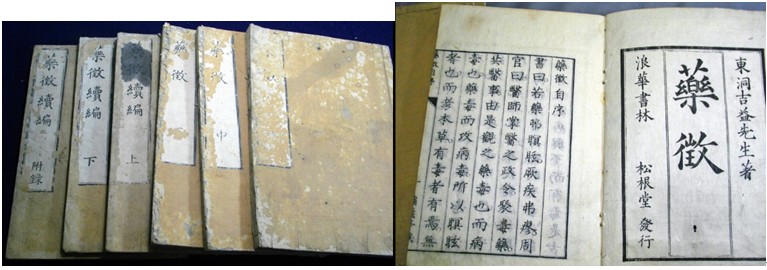 藥徵
中
藥徵
續編
上
藥徵續編
下
藥徵續編
附錄
東洞吉益先生著
藥徵
浪華書林 松根堂發行
藥徵自序
書曰若藥弗瞑眩厥疾弗瘳周
官曰醫師掌醫之政令聚毒藥
共醫事由是觀之藥毒也而病
毒也藥毒而攻病毒所以瞑眩
者也而考本草有毒者有焉無